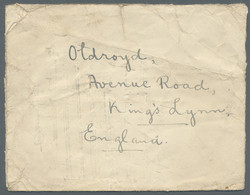 Oldroyd,
Avenue Road,
King's Lynn
England.